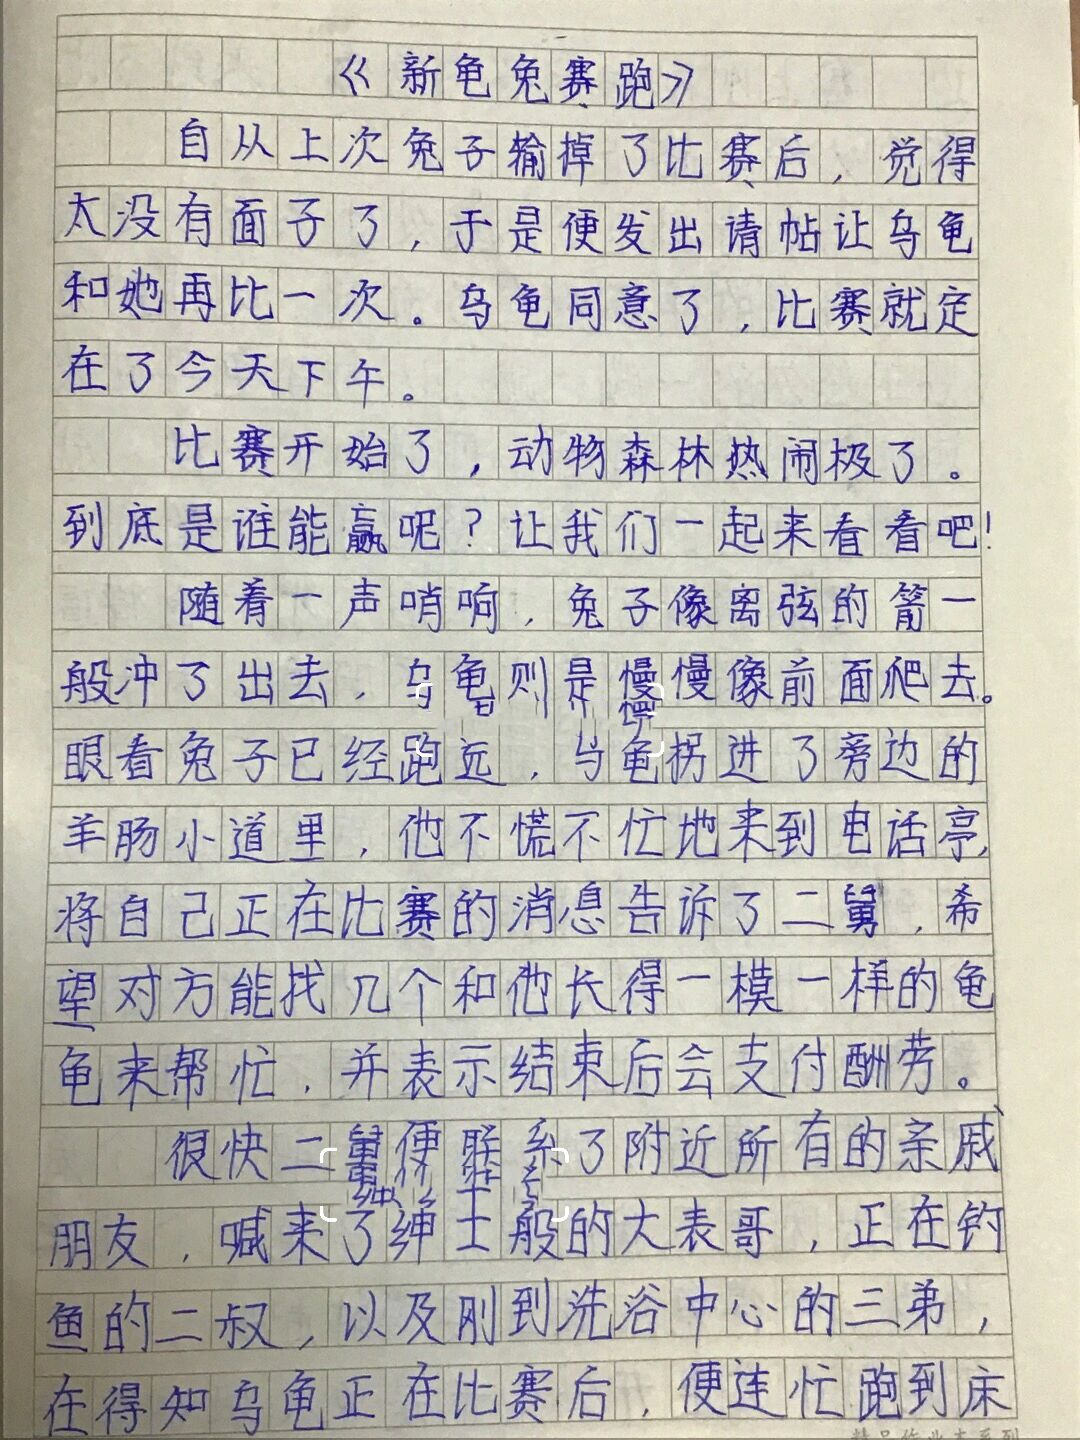 《新龟兔赛跑》
自从上次兔子输掉了比赛后，觉得
太没有面子了，于是便发出请帖让乌龟
和她再比一次。乌龟同意了，比赛就定
在了今天下午。
比赛开始了，动物森林热闹极了。
到底是谁能赢呢？让我们一起来看看吧！
随着一声哨响，兔子像离弦的箭一
般冲了出去，乌龟则是慢慢像前面爬去。
眼看兔子已经跑远，乌龟拐进了旁边的
羊肠小道里，他不慌不忙地来到电话亭，
将自己正在比赛的消息告诉了二舅，希
望对方能找几个和他长得一模一样的龟
龟来帮忙，并表示结束后会支付酬劳。
很快二舅便联系了附近所有的亲戚
朋友，喊来了绅士般的大表哥，正在钓
鱼的二叔，以及刚到洗浴中心的三弟，
在得知乌龟正在比赛后，便连忙跑到床